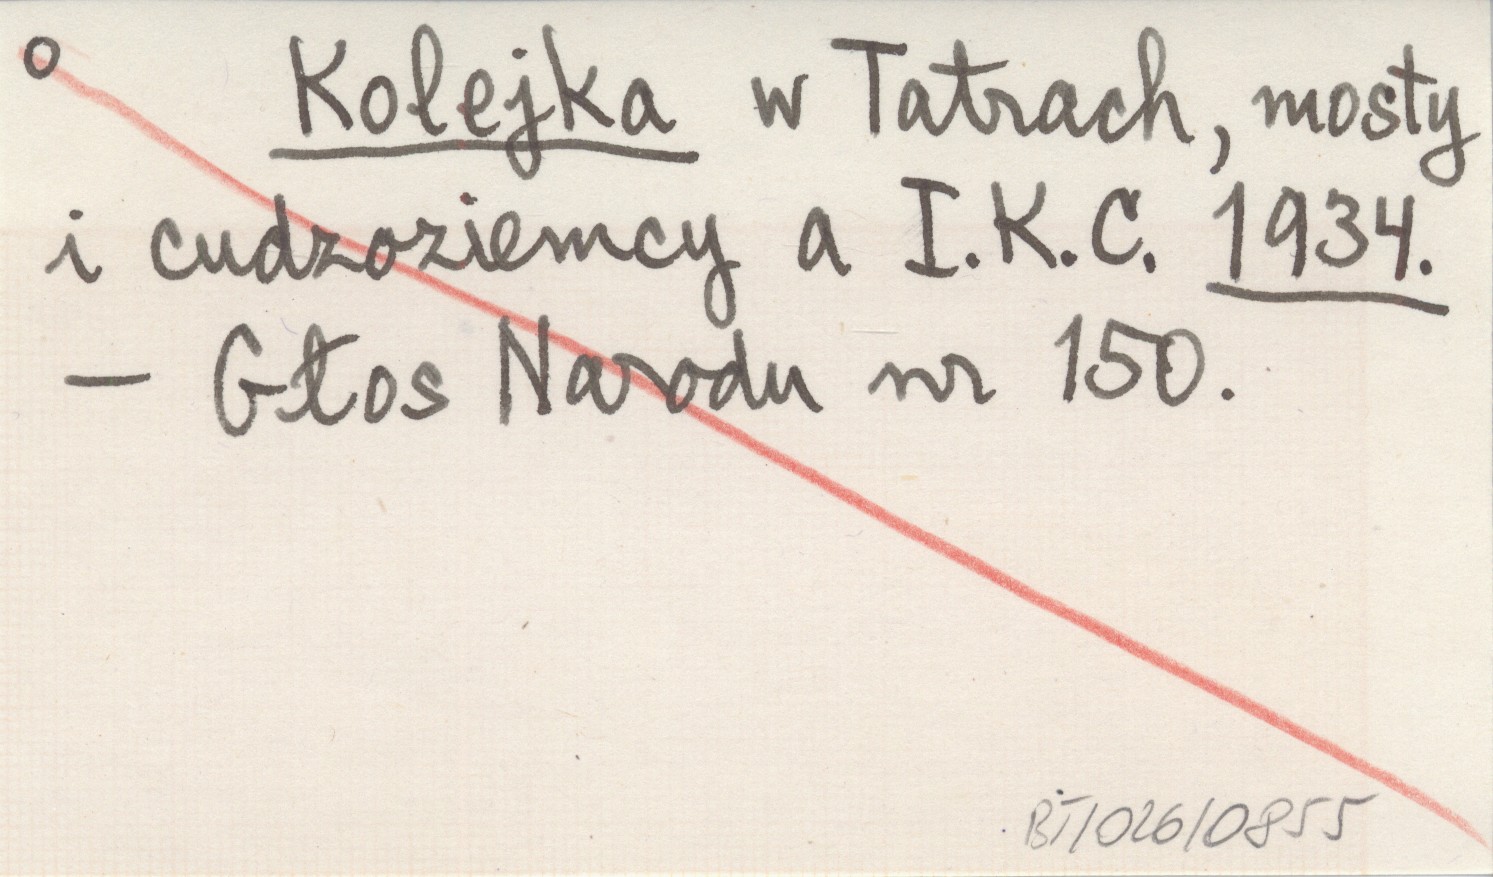 o Kolejka w Tatrach, mosty
i cudzoziemcy a I.K.C. 1934.
– Głos Narodu nr 150.
BT/026/0855